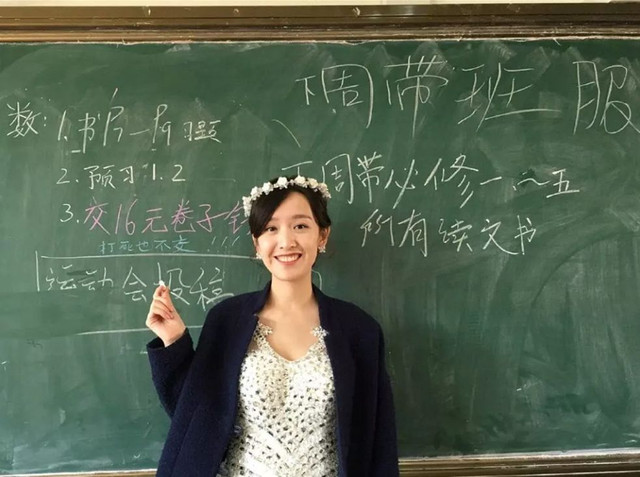 数:1.书P7—P9习题
2.预习1.2
3.交16元卷子
打死也不走!!!
运动会投稿
下周带班服
下周带必修一~五
所有读文书